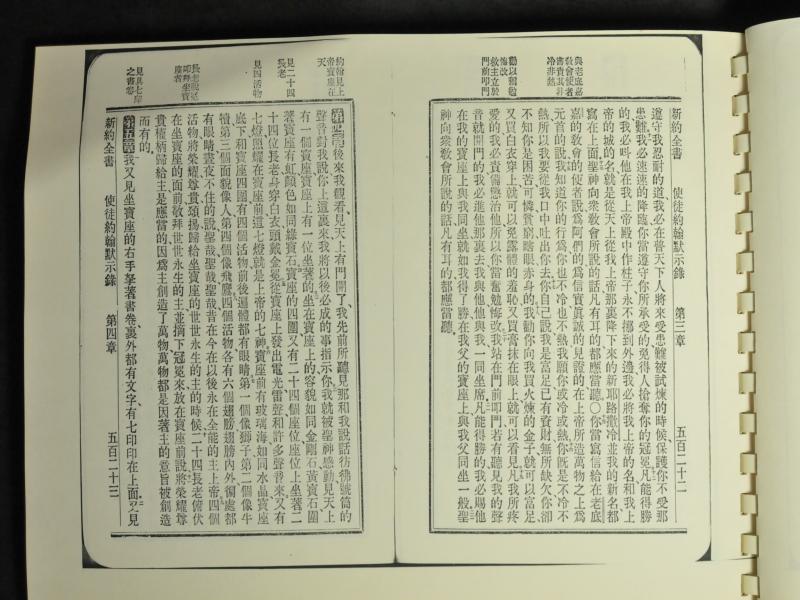 新約全書 使徒約翰默示錄 第三章 五百二十二
遵守我忍耐的道我必在普天下人將來受患難被試煉的時候保護你不受那
患難我必速速的降臨你當遵守你所承受的免得人搶奪你的冠冕凡能得勝
的我必叫他在我上帝殿中作柱子永不挪到外邊我必將我上帝的名和我上
帝的城的名就是從天上從我上帝那裏降下來的新耶路撒冷並我的新名都
寫在上面聖神向衆敎會所說的話凡有耳的都應當聽○你當寫信給在老底
嘉的敎會的使者說爲阿們的爲信實眞誠的見證的在上帝所造萬物之上爲
元首的說我知道你的行爲你也不冷也不熱我願你或冷或熱你旣是不冷不
熱所以我要從我口中吐出你去你自己說我是富足已有資財無所缺欠你卻
不知你是困苦可憐貧窮瞎眼赤身的我勸你向我買火煉的金子就可以富足
又買白衣穿上就可以免露體的羞恥又買膏抹在眼上就可以看見凡我所疼
愛的我必責備懲治他所以你當奮勉悔改我站在門前叩門若有聽見我的聲
音就開門的我必進他那裏去我與他他與我一同坐席凡能得勝的我必賜他
在我的寶座上與我同坐就如我得了勝在我父的寶座上與我父同坐一般聖
神向衆敎會所說的話凡有耳的都應當聽
與老底嘉
敎會使者
書責其非
冷非熱
勸以奮勉
悔改
救主立於
門前叩門
約翰見上
帝寶座在
天
見二十四
長老
見四活物
長老說近
叩拜坐寶
座者
見具七印
之書卷
第四章後來我觀看見天上有門開了我先前所聽見那和我說話彷彿號筒的
聲音對我說你上這裏來我將以後必成的事指示你我就被聖神感動見天上
有一個寶座寶座上有一位坐著的坐在寶座上的容貌如同金剛石黃寶石圍
著寶座有虹顏色如同綠寶石寶座的四圍又有二十四個座位座位上坐著二
十四位長老身穿白衣頭戴金冕從寶座上發出電光雷聲和許多聲音來又有
七燈照耀在寶座前這七燈就是上帝的七神寶座前有玻璃海如同水晶寶座
底下和寶座四圍有四個活物前後遍體都有眼睛第一個像獅子第二個像牛
犢第三個面貌像人第四個像飛鷹四個活物各有六個翅膀翅膀內外徧處都
有眼睛晝夜不住的說聖哉聖哉聖哉昔在今在以後永在全能的主上帝四個
活物將榮耀尊貴頌揚歸給坐寶座的世世永生的主的時候二十四長老俯伏
在坐寶座的面前敬拜世世永生的主並摘下冠冕來放在寶座前說將榮耀尊
貴權柄歸給主是應當的因爲主創造了萬物萬物都是因著主的意旨被創造
而有的
第五章我又見坐寶座的右手拏著書卷裏外都有文字有七印印在上面又見
新約全書 使徒約翰默示錄 第四章 五百二十三